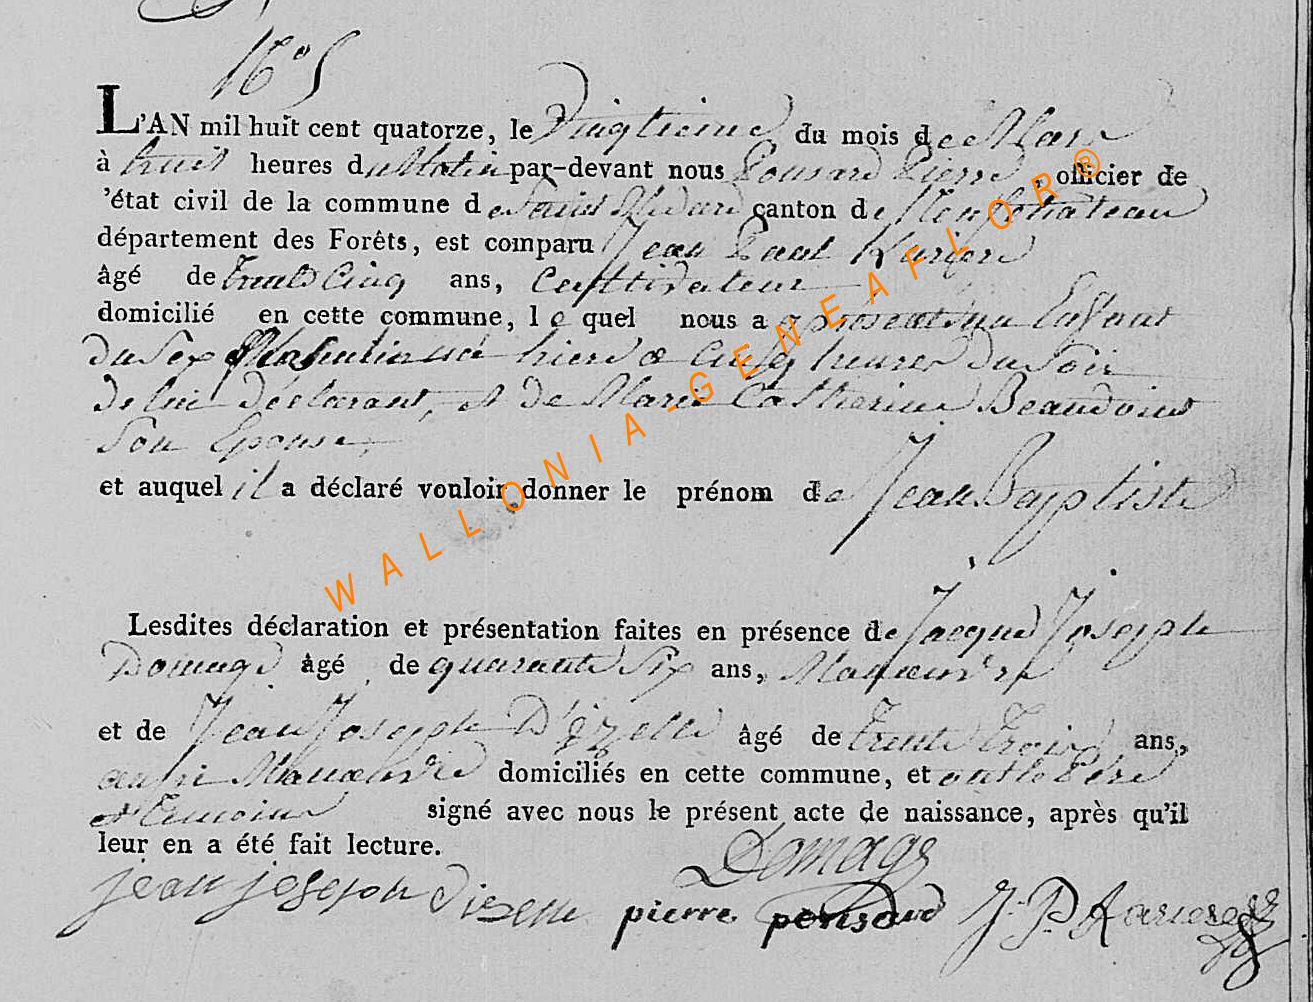 16°
L'AN mil huit cent quatorze, le vingtieme du mois de Mars
à huit heures du Matin par-devant nous Ponsard Pierre, officier de
'état civil de la commune de Saint Médard canton de Neufchateau
département des Forêts, est comparu Jean Paul
âgé de trente Cinq ans, Cultivateur
domicilié en cette commune, le quel nous a presenté un Enfant
du Sex Masculin né hiere a Cinq heures du Soir
de lui déclarant, et de Marie Catherine Beaudoint
Son Epouse,
et auquel il a déclaré vouloir donner le prénom de Jean Baptiste
Lesdites déclaration et présentation faites en présence de Jacque Joseph
Domage âgé de quarante Six ans, Manoeuvre
et de Jean Joseph D'izelle âgé de trente Trois ans,
aussi Manoeuvre domiciliés en cette commune, et ont le Pére
et temoins signé avec nous le présent acte de naissance, après qu'il
leur en a été fait lecture.
Domage
jean joseph Dizelle pierre ponsard J. P.
WALLONIA-GENEAFLOR®